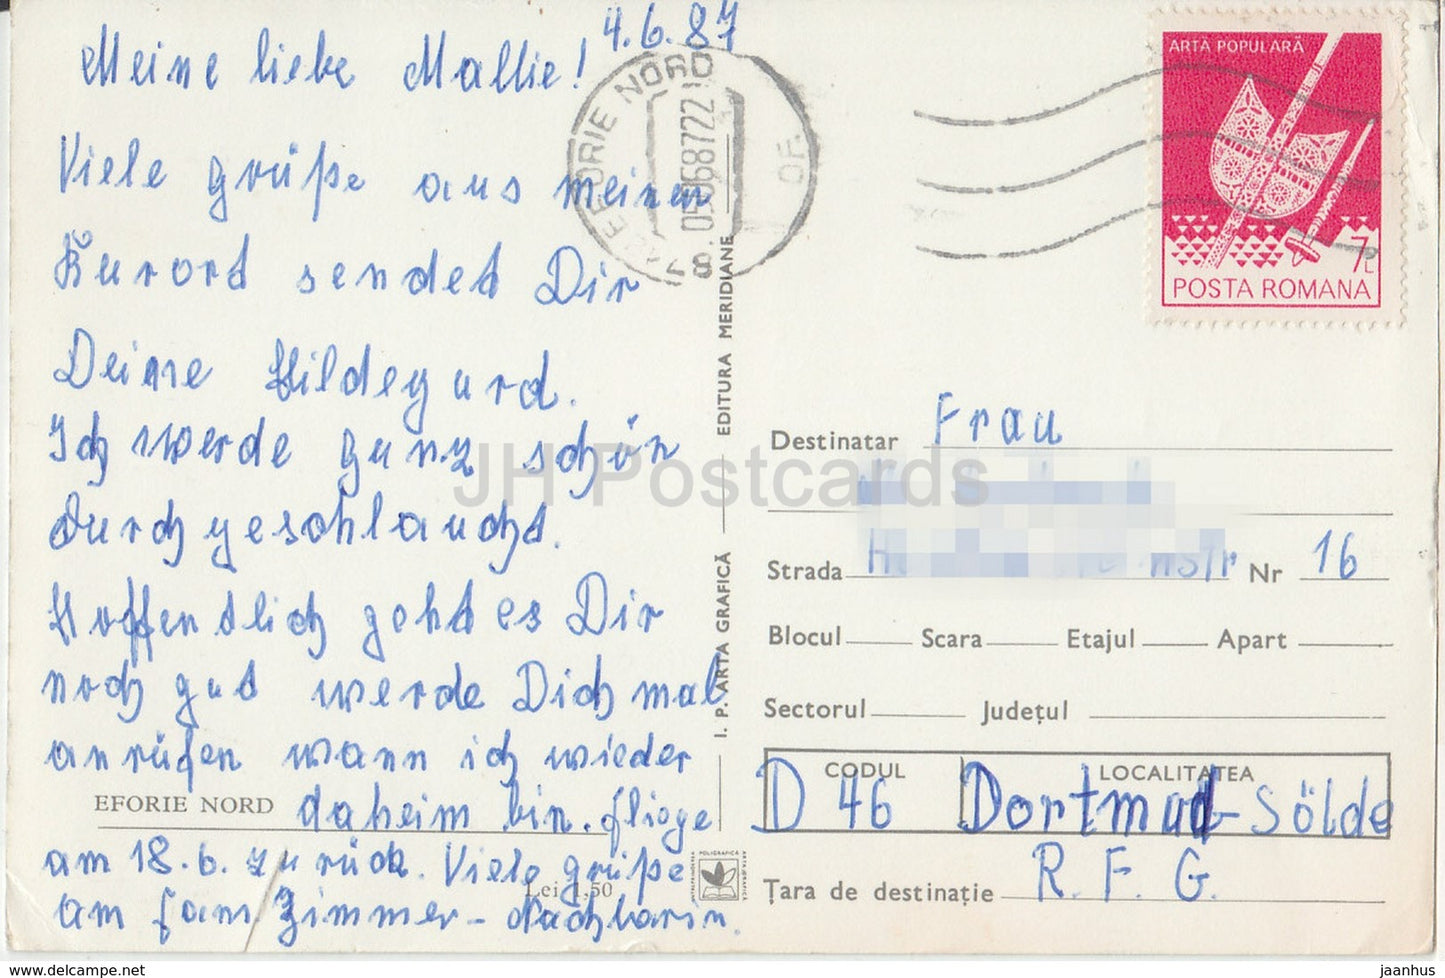 4.6.87
Meine liebe Mallie!
Viele grüße aus meinem
Kurort sendet Dir
Deine Hildegard.
Ich werde ganz schön
durchgeschlaucht.
Hoffentlich geht es Dir
noch gut werde Dich mal
anrufen wann ich wieder
EFORIE NORD daheim bin. fliege
am 18.6. zurück. Viele grüße
Lei 1,50
am fam. Zimmer-Nachbarin.
EFORIE NORD
05.068722
OF.
I. P. ARTA GRAFICĂ EDITURA MERIDIANE
ARTA POPULARĂ
7L
POSTA ROMANA
Destinatar Frau
Strada Nr 16
Blocul Scara Etajul Apart
Sectorul Județul
CODUL LOCALITATEA
D 46 Dortmund-Sölde
Țara de destinație R. F. G.
JH Postcards
www.delcampe.net
jaanhus